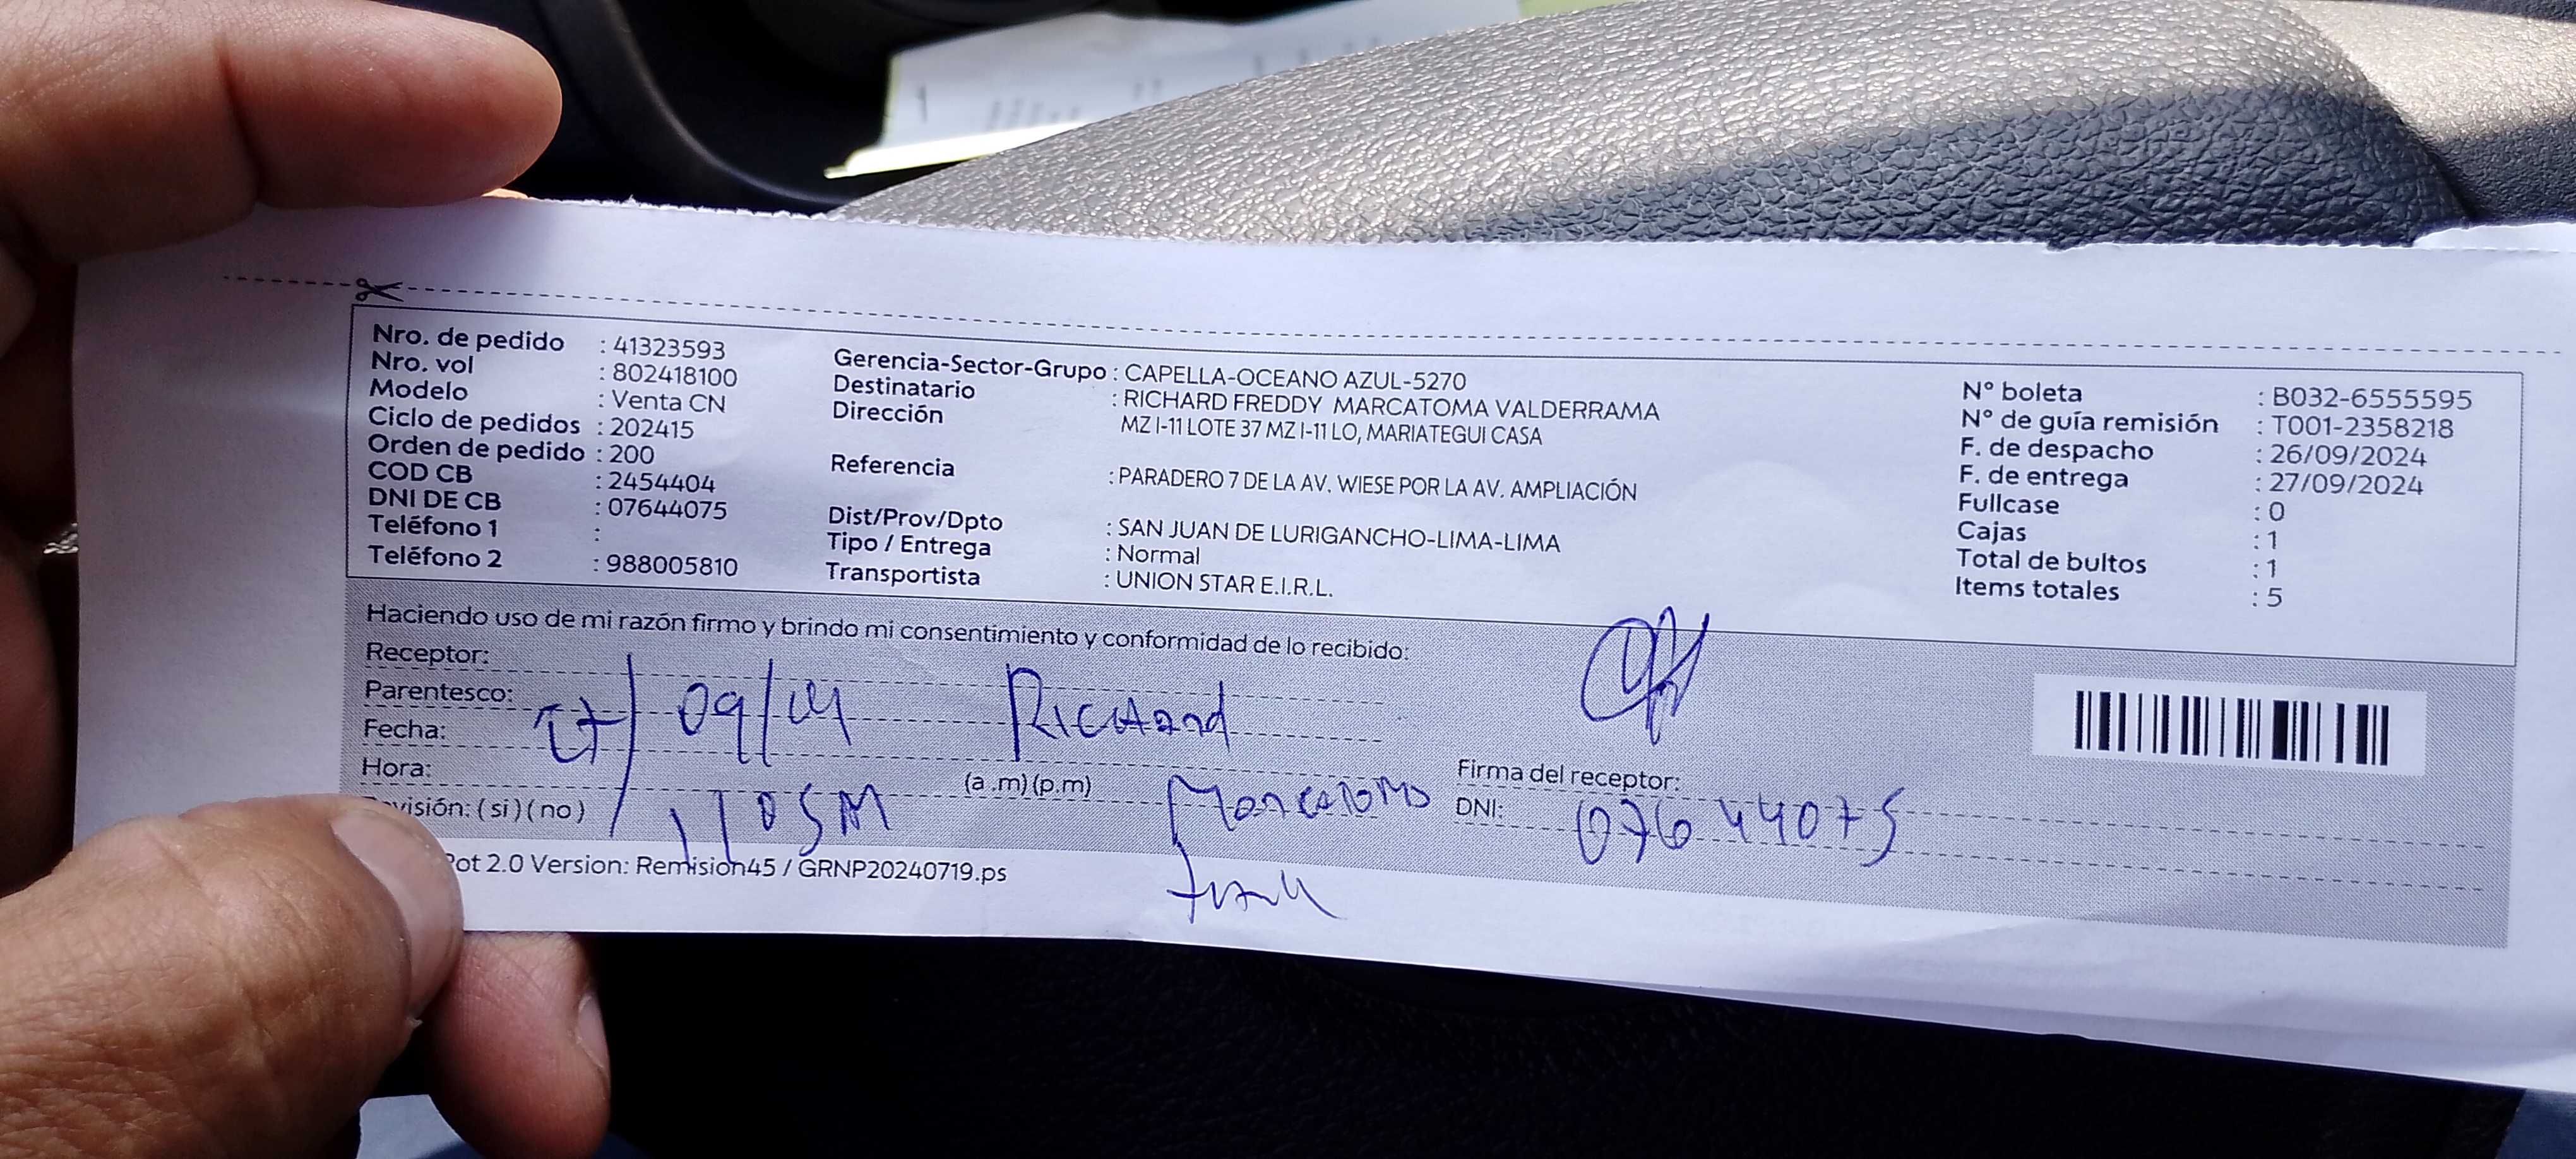 Nro. de pedido : 41323593
Nro. vol : 802418100
Modelo : Venta CN
Ciclo de pedidos : 202415
Orden de pedido : 200
COD CB : 2454404
DNI DE CB : 07644075
Teléfono 1 :
Teléfono 2 : 988005810
Gerencia-Sector-Grupo : CAPELLA-OCEANO AZUL-5270
Destinatario : RICHARD FREDDY MARCATOMA VALDERRAMA
Dirección MZ I-11 LOTE 37 MZ I-11 LO, MARIATEGUI CASA
Referencia : PARADERO 7 DE LA AV. WIESE POR LA AV. AMPLIACIÓN
Dist/Prov/Dpto : SAN JUAN DE LURIGANCHO-LIMA-LIMA
Tipo / Entrega : Normal
Transportista : UNION STAR E.I.R.L.
N° boleta : B032-6555595
N° de guía remisión : T001-2358218
F. de despacho : 26/09/2024
F. de entrega : 27/09/2024
Fullcase : 0
Cajas : 1
Total de bultos : 1
Items totales : 5
Haciendo uso de mi razón firmo y brindo mi consentimiento y conformidad de lo recibido:
Receptor:
Parentesco:
Fecha: 27/09/24 Richard
Hora: (a.m)(p.m) Marcatoma
visión: ( si ) ( no )
Firma del receptor:
DNI: 07644075
ot 2.0 Version: Remision45 / GRNP20240719.ps